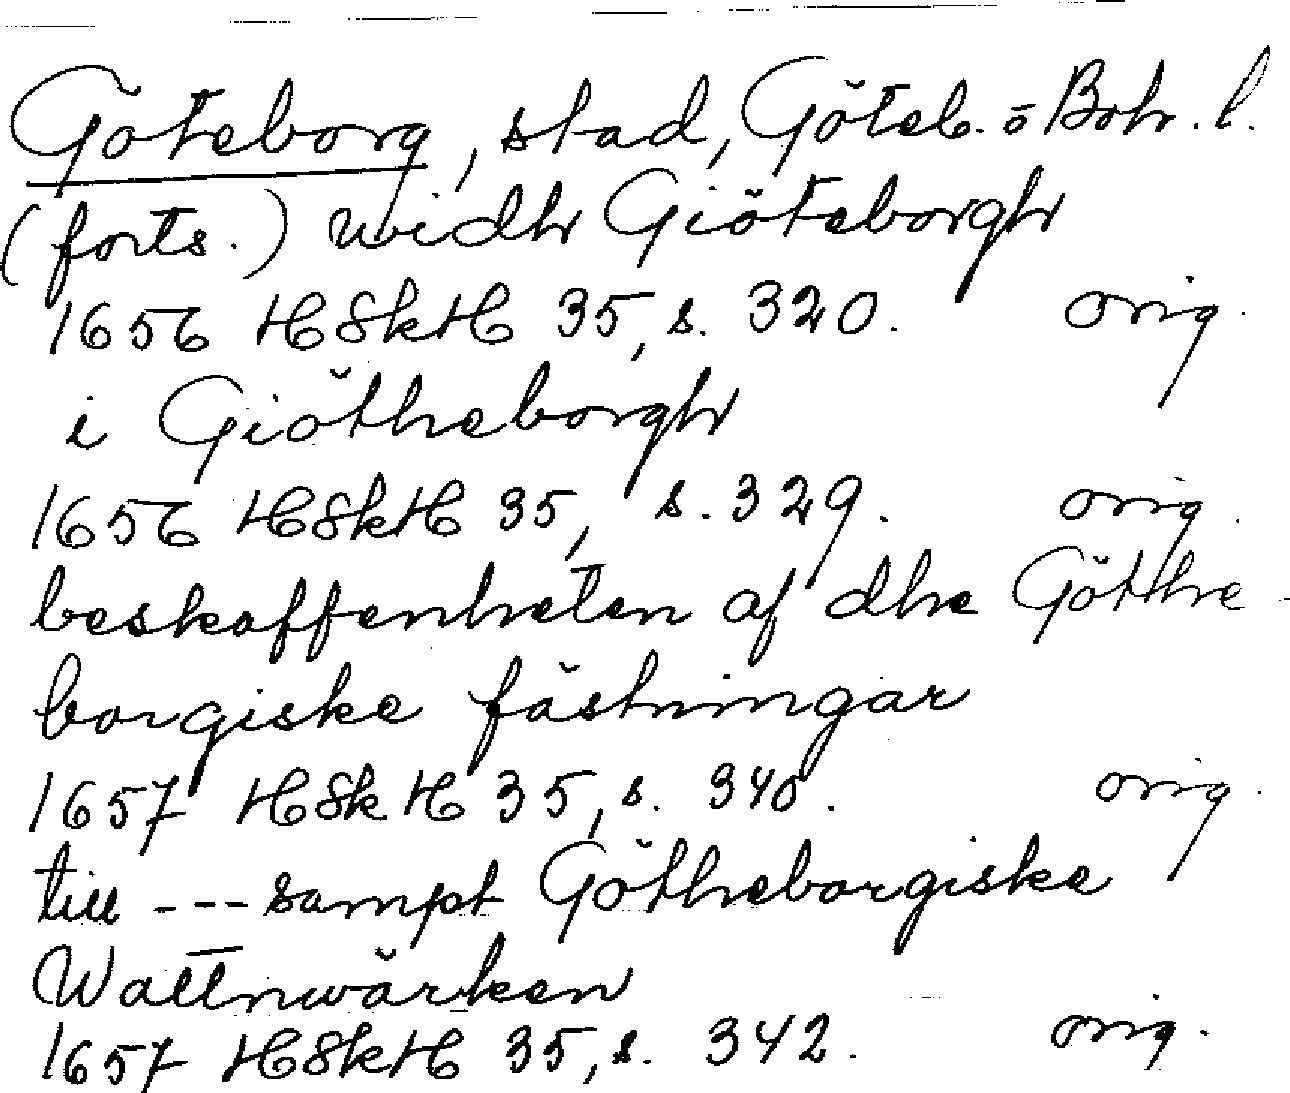 Göteborg, stad, Göteb. o Boh. l.
(forts.) widh Giöteborgh
1656 HSkH 35, s. 320. orig.
i Giötheborgh
1656 HSkH 35, s. 329. orig.
beskaffenheten af dhe Göthe-
borgiske fästningar
1657 HSkH 35, s. 340. orig.
till --- sampt Götheborgiske
Wattnwärken
1657 HSkH 35, s. 342. orig.